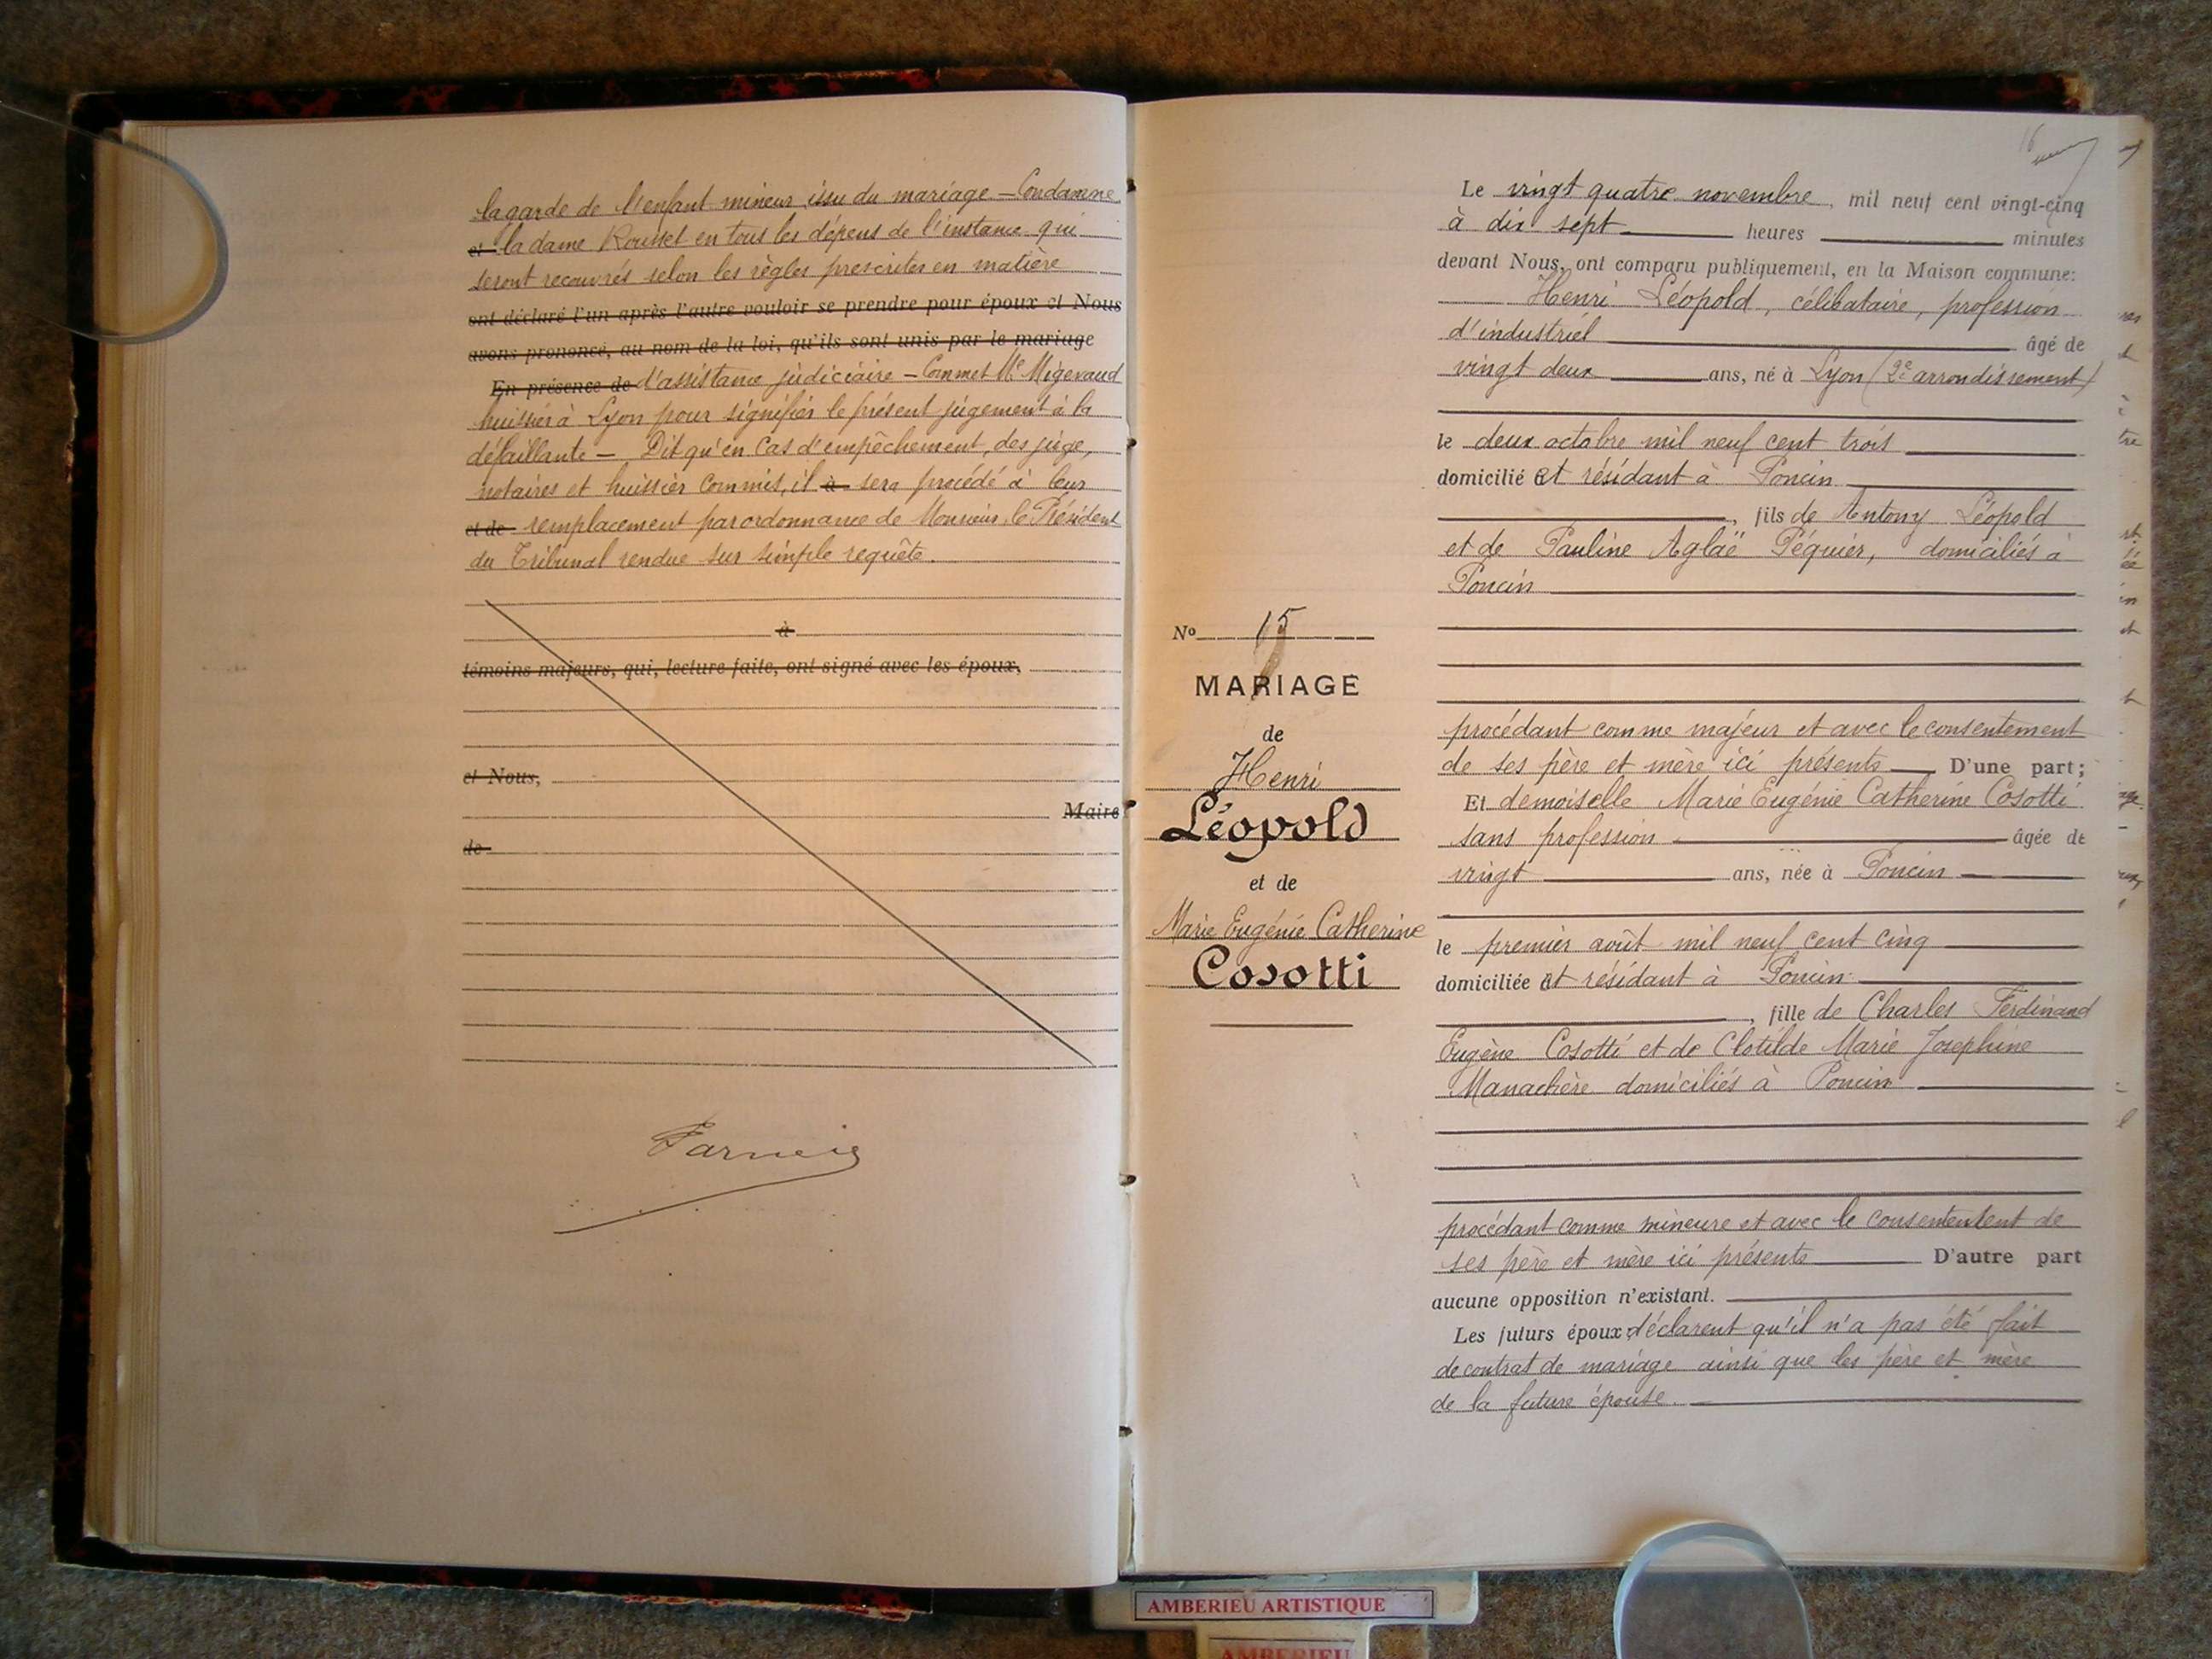 la garde de l'enfant mineur issu du mariage — Condamne
et la dame Rousset en tous les dépens de l'instance qui
seront recouvrés selon les règles prescrites en matière
ont déclaré l'un après l'autre vouloir se prendre pour époux et Nous
avons prononcé, au nom de la loi, qu'ils sont unis par le mariage
En présence de d'assistance judiciaire — Commet Me Migevaud
huissier à Lyon pour signifier le présent jugement à la
défaillante — Dit qu'en cas d'empêchement, des juge,
notaires et huissier commis, il à sera procédé à leur
et de remplacement par ordonnance de Monsieur le Président
du Tribunal rendue sur simple requête.
à
témoins majeurs, qui, lecture faite, ont signé avec les époux,
et Nous,
Maire
de
16
Le vingt quatre novembre, mil neuf cent vingt-cinq
à dix sept heures minutes
devant Nous, ont comparu publiquement, en la Maison commune:
Henri Léopold, célibataire, profession
d'industriel âgé de
vingt deux ans, né à Lyon (2e arrondissement)
le deux octobre mil neuf cent trois
domicilié et résidant à Poncin
, fils de Antony Léopold
et de Pauline Aglaë Péquier, domiciliés à
Poncin
No 15
MARIAGE
de
Henri
Léopold
et de
Marie Eugénie Catherine
Cosotti
procédant comme majeur et avec le consentement
de ses père et mère ici présents D'une part;
Et demoiselle Marie Eugénie Catherine Cosotti
sans profession âgée de
vingt ans, née à Poncin
le premier août mil neuf cent cinq
domiciliée et résidant à Poncin
, fille de Charles Ferdinand
Eugène Cosotti et de Clotilde Marie Josephine
Manachère domiciliés à Poncin
procédant comme mineure et avec le consentement de
ses père et mère ici présents D'autre part
aucune opposition n'existant.
Les futurs époux déclarent qu'il n'a pas été fait
de contrat de mariage ainsi que les père et mère
de la future épouse.
AMBERIEU ARTISTIQUE
AMBERIEU